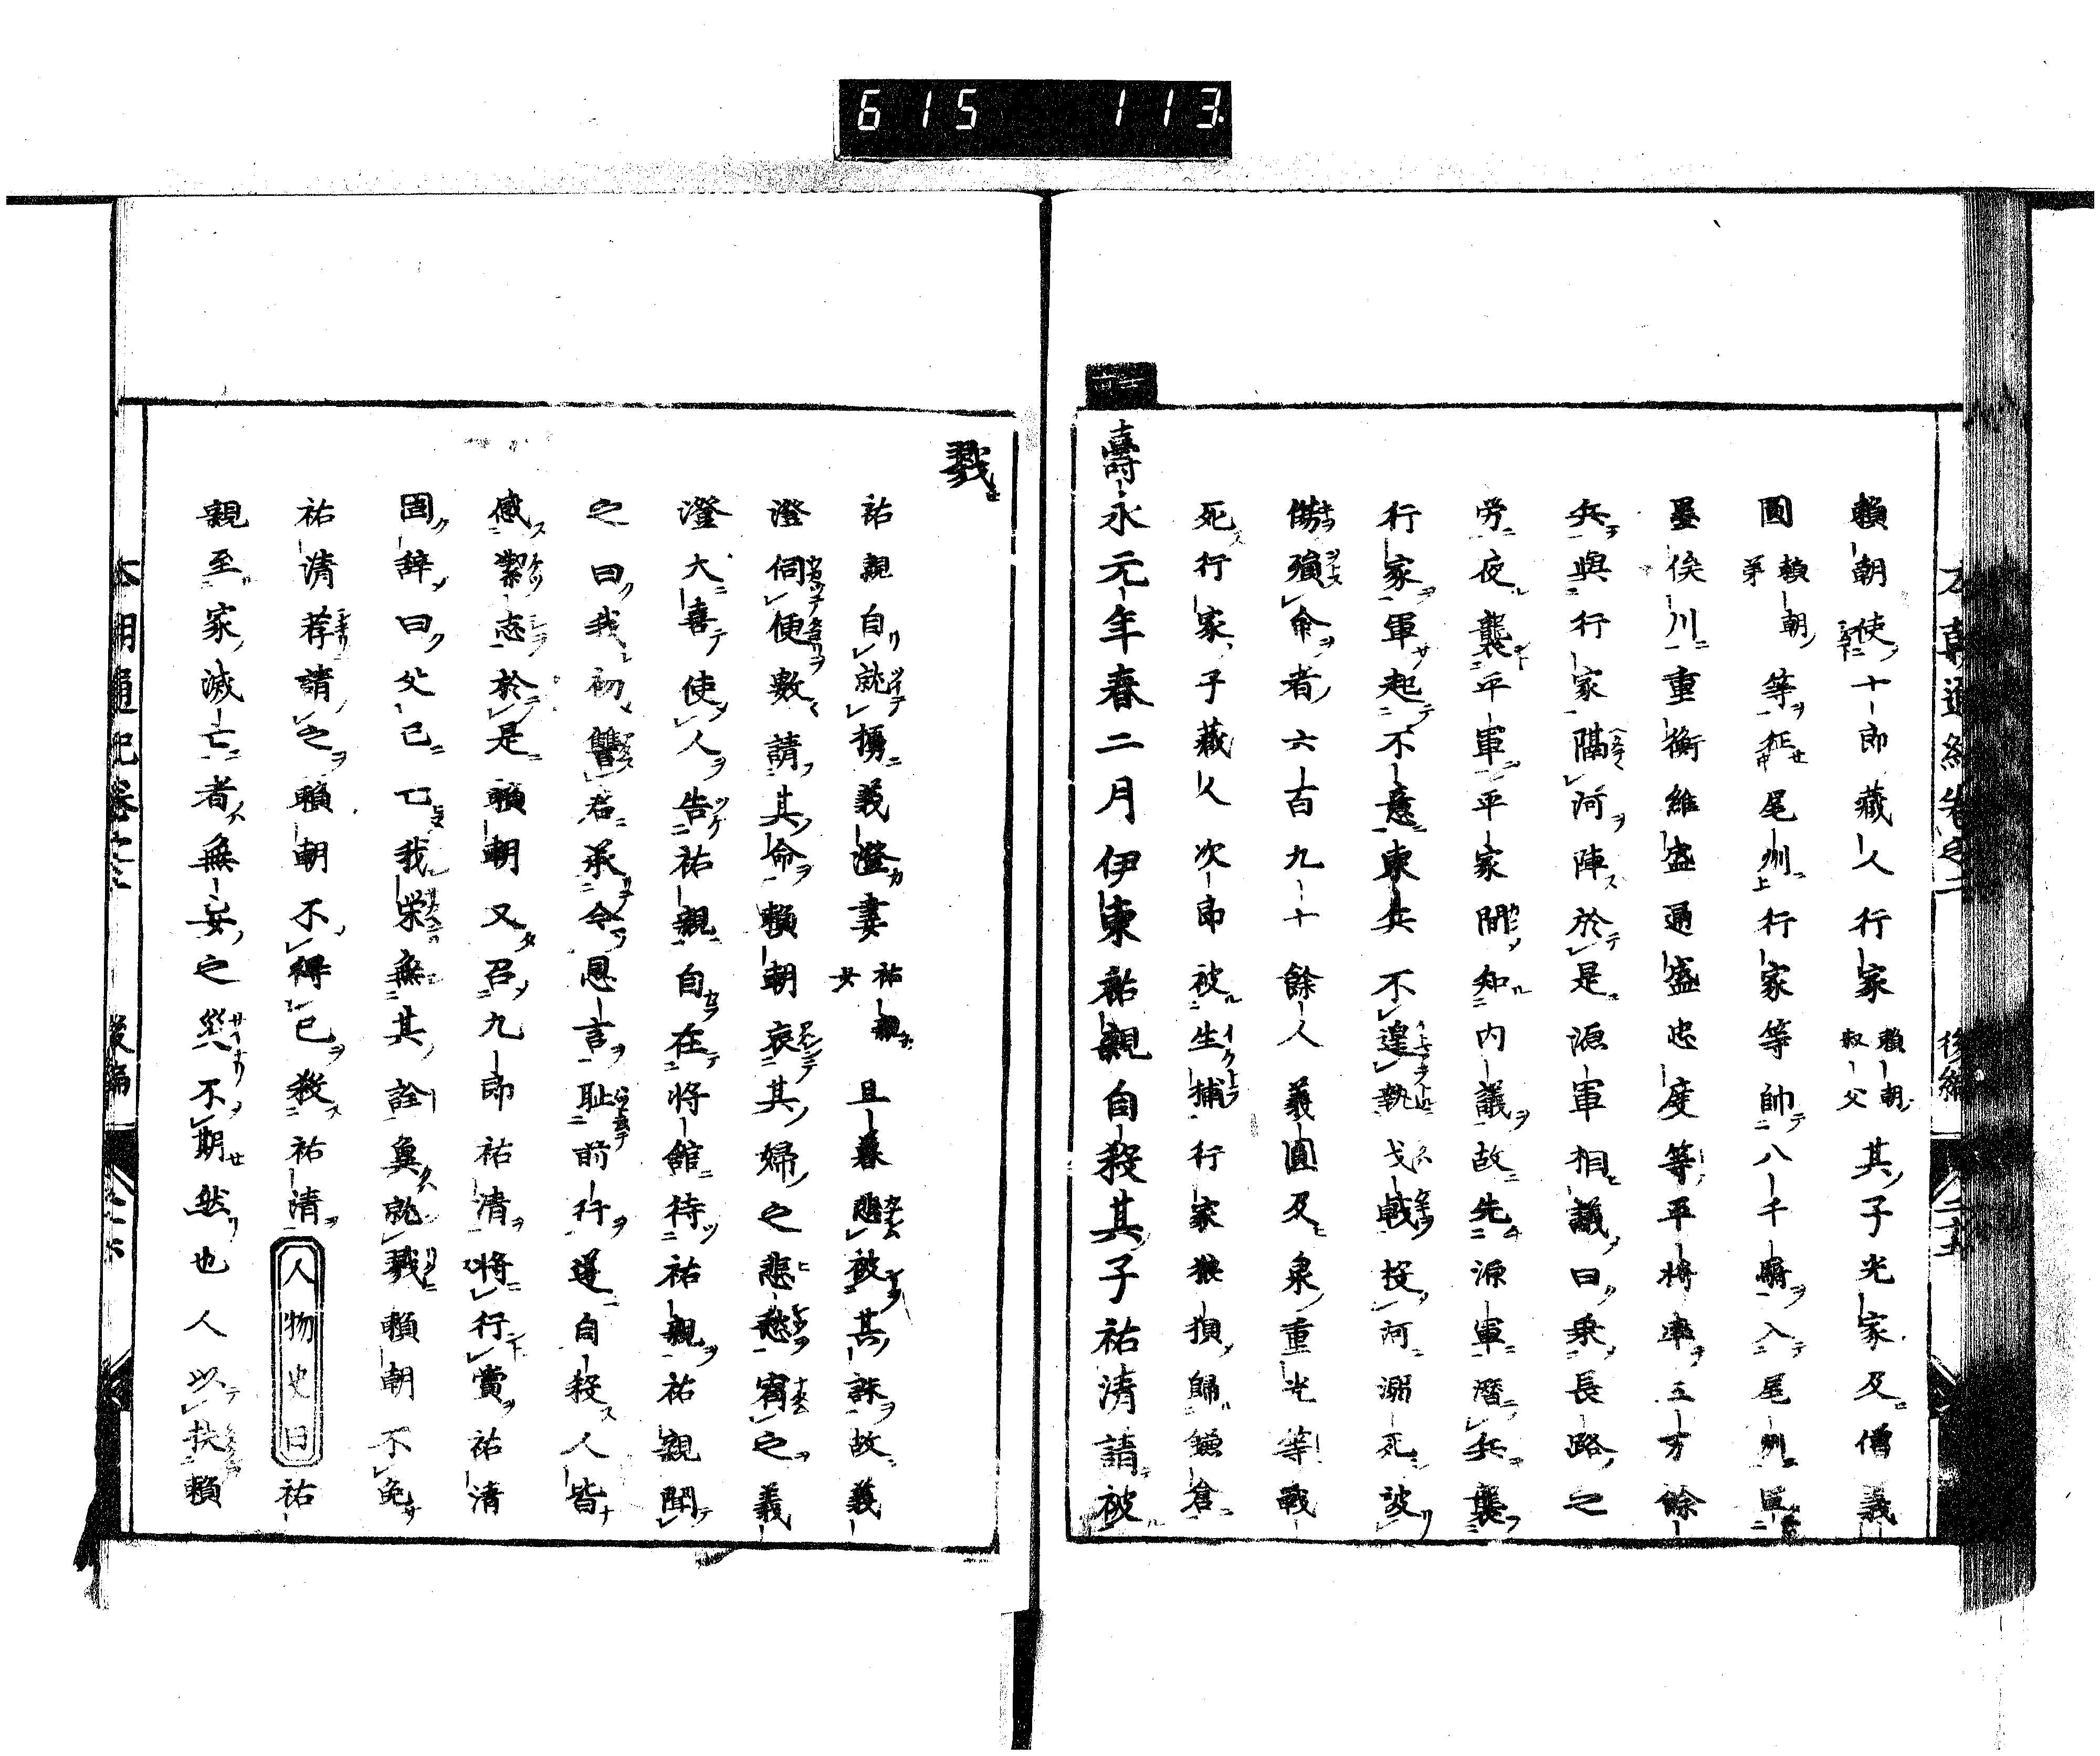 615 113
本朝通紀卷之二 後編
賴朝使十郎藏人行家賴朝叔父其子光家及僧義
圓賴朝弟等征尾州行家等帥八千騎入尾州軍
墨俣川重衡維盛通盛忠度等平將率三万餘
兵與行家隔河陣於是源軍相議曰乗長路之
労夜襲平軍平家間知内議故先源軍潛兵襲
行家軍起不意東兵不遑執戈戦投河溺死被
傷殞命者六百九十餘人義圓及泉重光等戰
死行家子藏人次郎被生捕行家狼狽歸鎌倉
壽永元年春二月伊東祐親自殺其子祐清請被
戮
祐親自就摛義澄妻祐親女旦暮悲被其誅故義
澄伺便數請其命賴朝哀其婦之悲愁宥之義
澄大喜使人告祐親自在將館待祐親祐親聞
之曰我初讐君承今恩言耻前行遂自殺人皆
感潔志於是賴朝又召九郎祐清將行賞祐清
固辞曰父已亡我榮無其詮奠就戮賴朝不免
祐清荐請之賴朝不得已殺祐清人物史曰祐
親至家滅亡者無妄之災不期然也人以扶賴
本朝通紀卷之二 後編